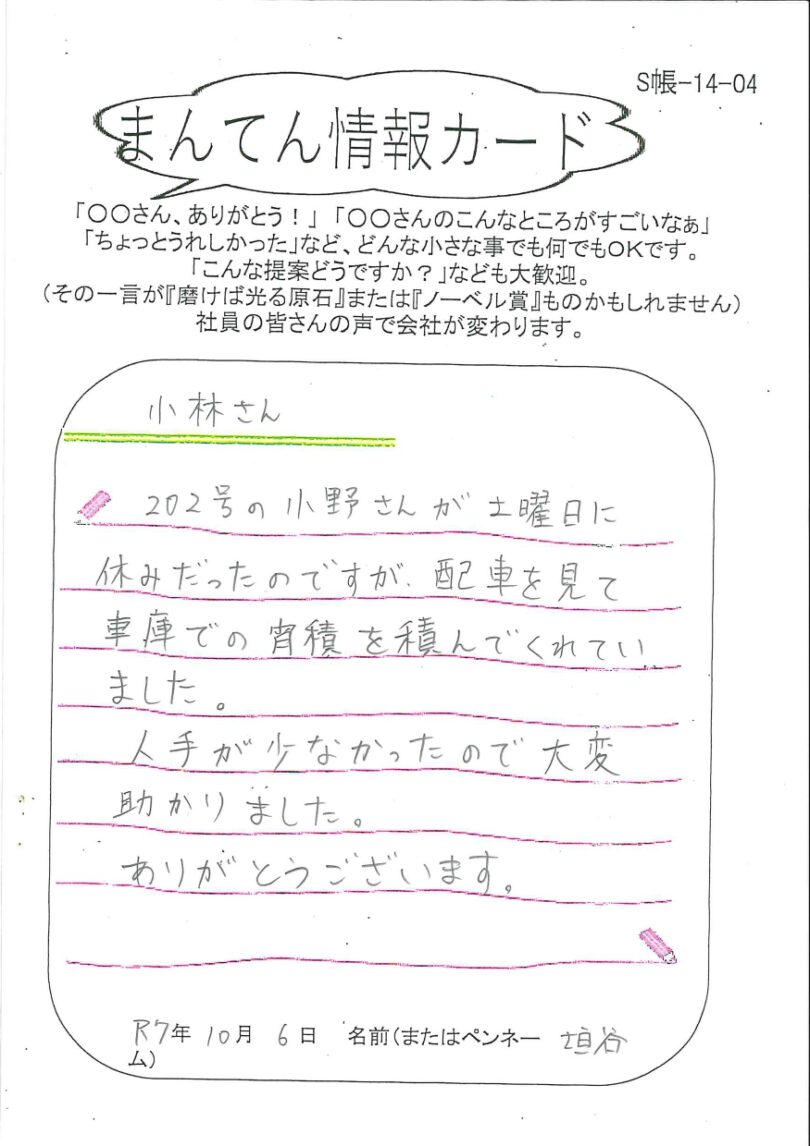 S帳-14-04
まんてん情報カード
「〇〇さん、ありがとう！」「〇〇さんのこんなところがすごいなぁ」
「ちょっとうれしかった」など、どんな小さな事でも何でもOKです。
「こんな提案どうですか？」なども大歓迎。
（その一言が『磨けば光る原石』または『ノーベル賞』ものかもしれません）
社員の皆さんの声で会社が変わります。
小林さん
202号の小野さんが土曜日に
休みだったのですが、配車を見て
車庫での宵積を積んでくれてい
ました。
人手が少なかったので大変
助かりました。
ありがとうございます。
R7年 10月 6日 名前（またはペンネー 垣谷
ム）